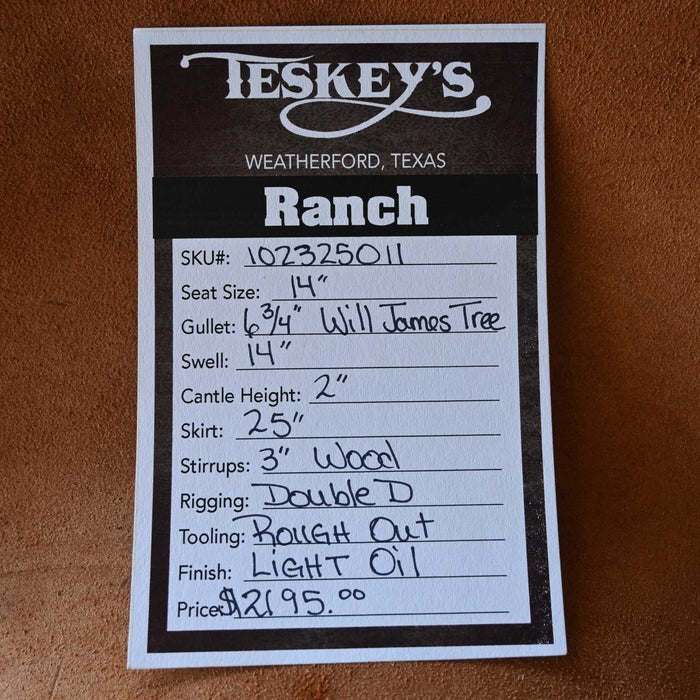 TESKEY'S
WEATHERFORD, TEXAS
Ranch
SKU#: 102325011
Seat Size: 14"
Gullet: 6 3/4" Will James Tree
Swell: 14"
Cantle Height: 2"
Skirt: 25"
Stirrups: 3" Wood
Rigging: Double D
Tooling: ROUGH Out
Finish: LIGHT Oil
Price: $2195.00